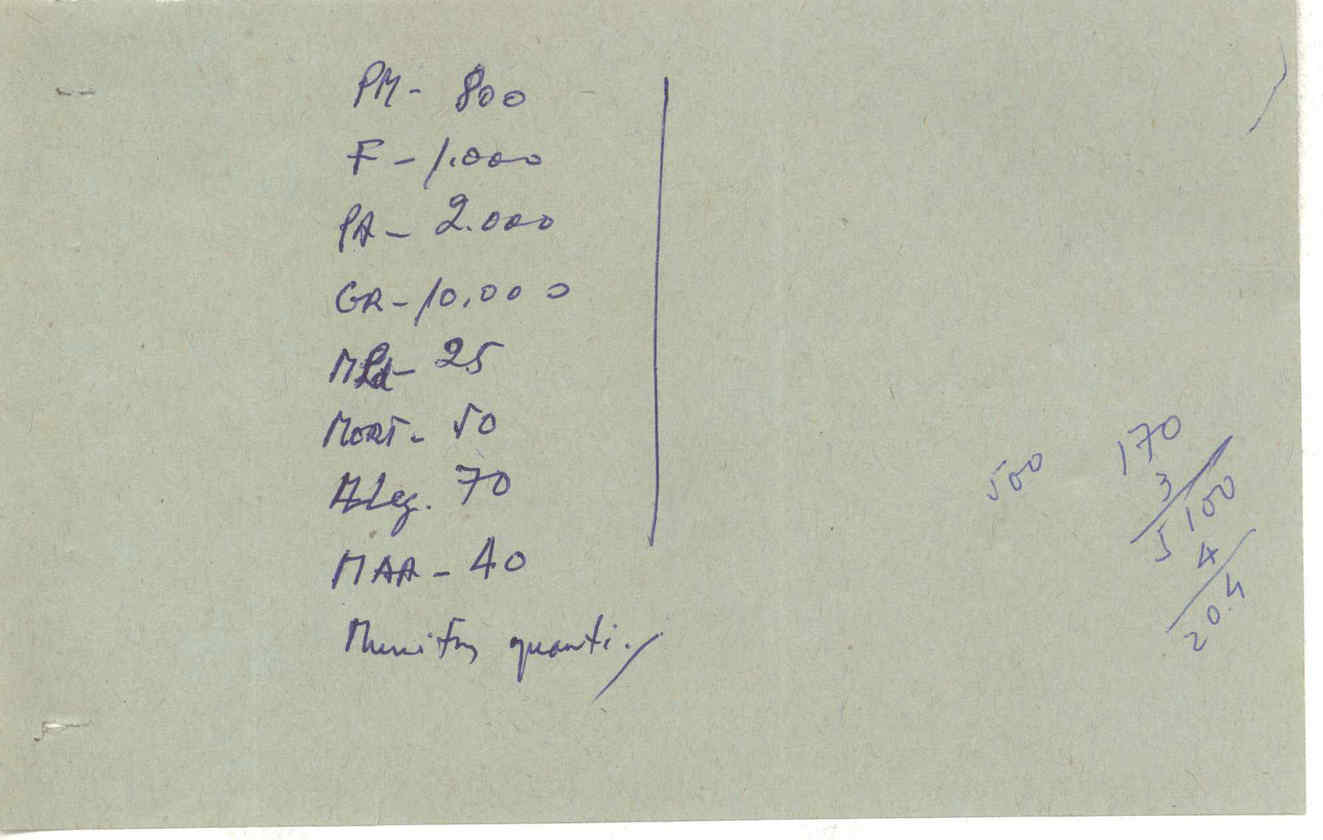 PM - 800
F - 1.000
PA - 2.000
GR - 10.000
MLd - 25
MORT - 50
MLeg. 70
MAA - 40
quanti.
500
170
3
5100
4
20.4